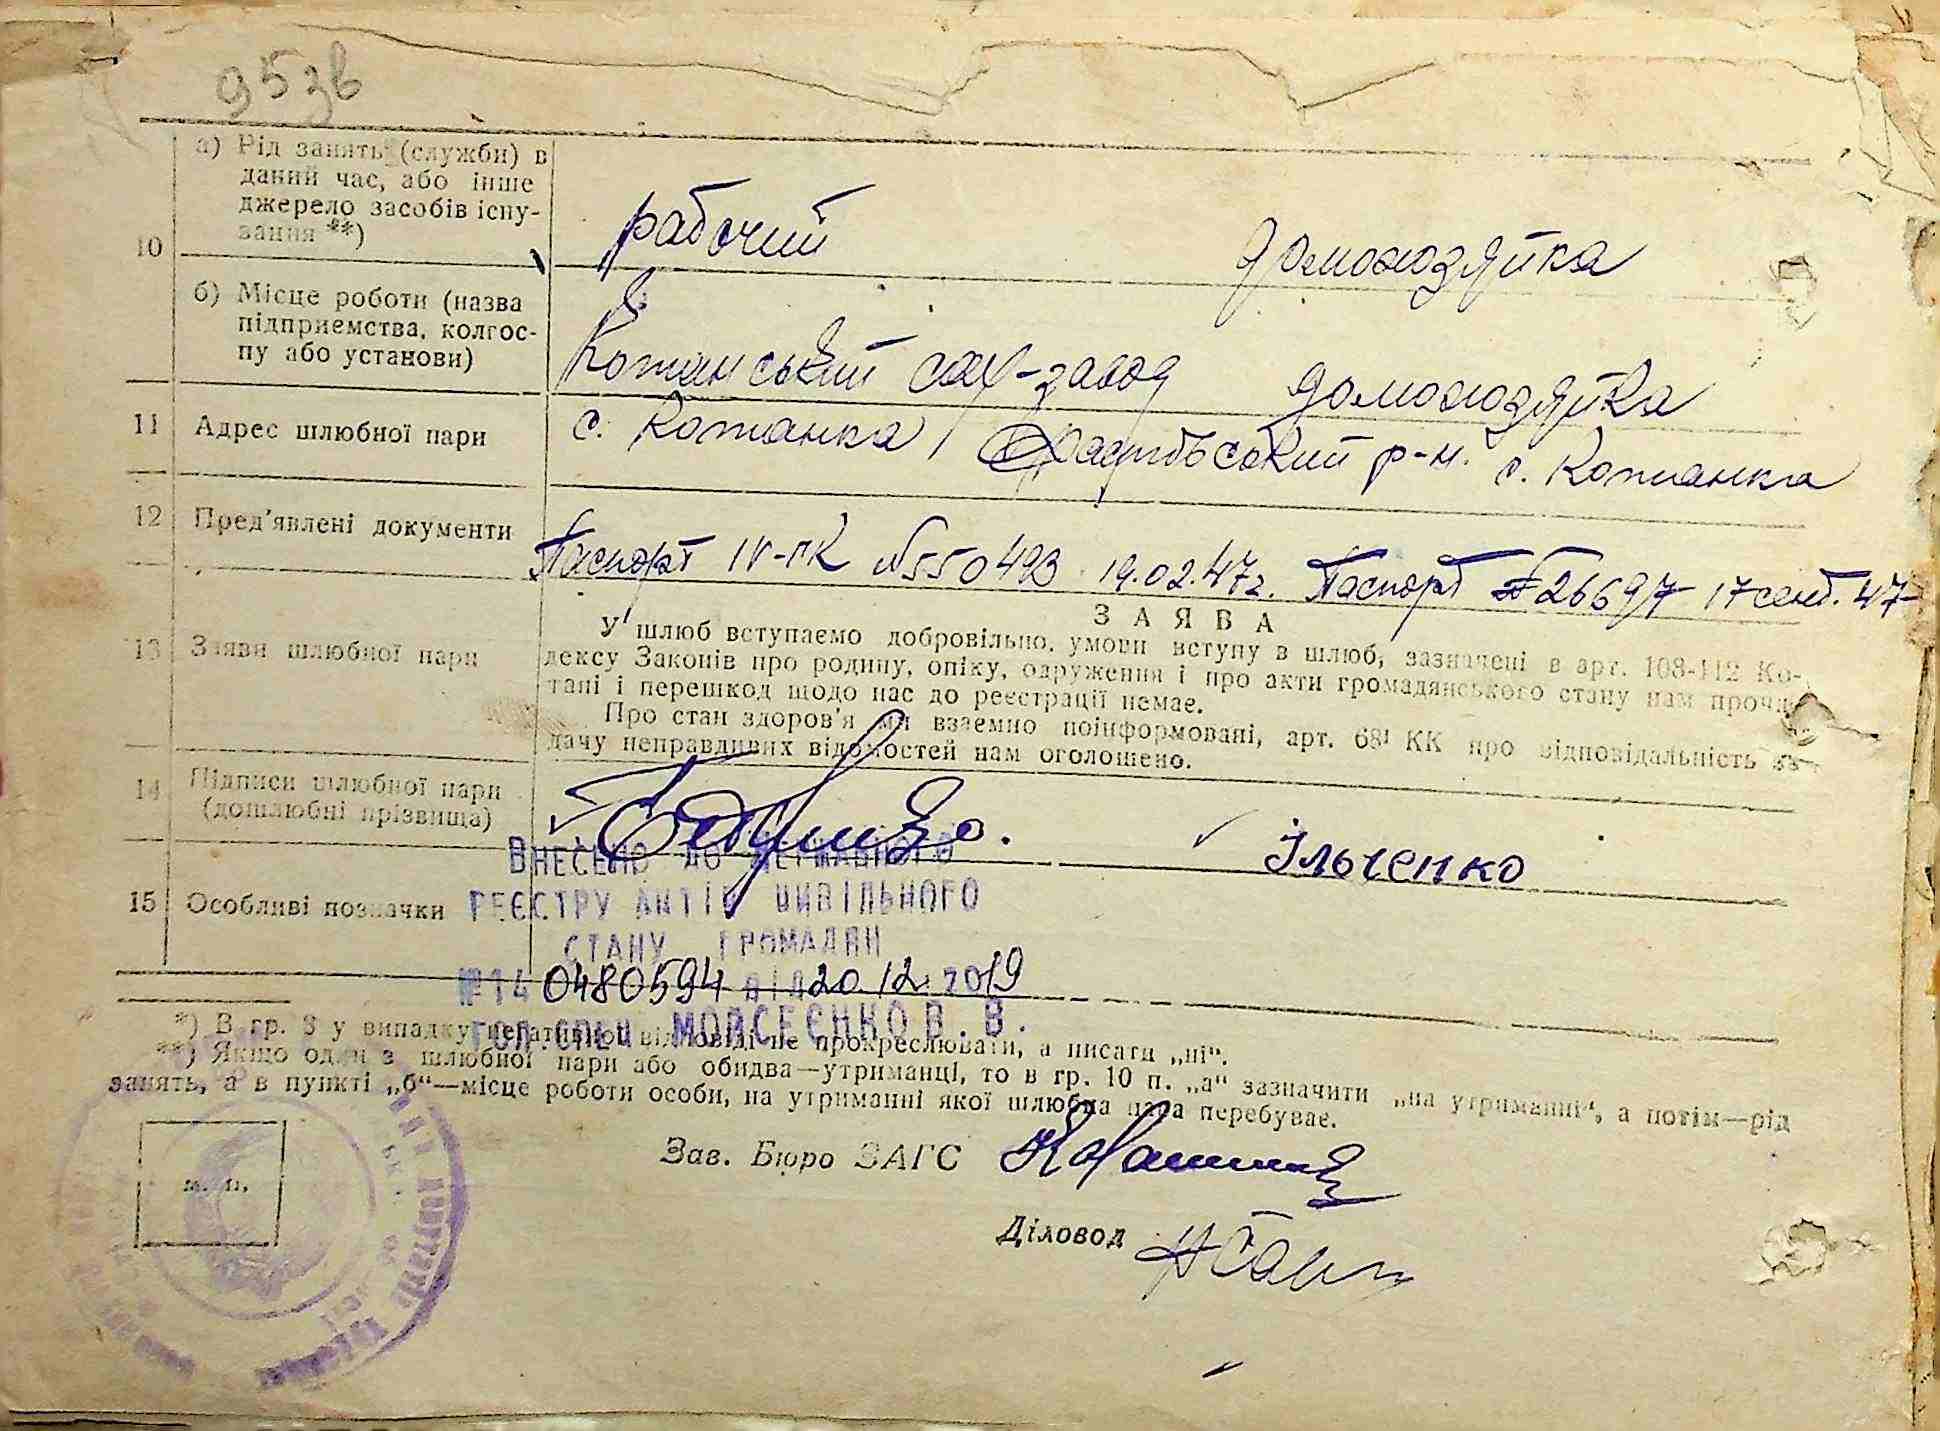 953в
а) Рід занять (служби) в
даний час, або інше
джерело засобів існу-
вання **)
10
рабочий домохозяйка
б) Місце роботи (назва
підприємства, колгос-
пу або установи)
Кожанський сах-завод домохозяйка
11 Адрес шлюбної пари
с. Кожанка, Фастівський р-н. с. Кожанка
12 Пред'явлені документи
Паспорт IV-ГК №550493 19.02.47г. Паспорт №26697 17 сент. 47
13 Заяви шлюбної пари
ЗАЯВА
У шлюб вступаємо добровільно, умови вступу в шлюб, зазначені в арт. 108-112 Ко-
дексу Законів про родину, опіку, одруження і про акти громадянського стану нам прочи-
тані і перешкод щодо нас до реєстрації немає.
Про стан здоров'я ми взаємно поінформовані, арт. 68¹ КК про відповідальність за
дачу неправдивих відомостей нам оголошено.
14 Підписи шлюбної пари
(дошлюбні прізвища)
Ільченко
15 Особливі позначки
ВНЕСЕНО ДО ДЕРЖАВНОГО
РЕЄСТРУ АКТІВ ЦИВІЛЬНОГО
СТАНУ ГРОМАДЯН
№14 0480594 ВІД 20.12.2019
ГОЛ.СПЕЦ МОЙСЕЄНКО В.В.
*) В гр. 3 у випадку негативної відповіді не прокреслювати, а писати „ні“.
**) Якщо один з шлюбної пари або обидва—утриманці, то в гр. 10 п. „а“ зазначити „на утриманні“, а потім—рід
занять, а в пункті „б“—місце роботи особи, на утриманні якої шлюбна пара перебуває.
м. п.
Зав. Бюро ЗАГС
Діловод